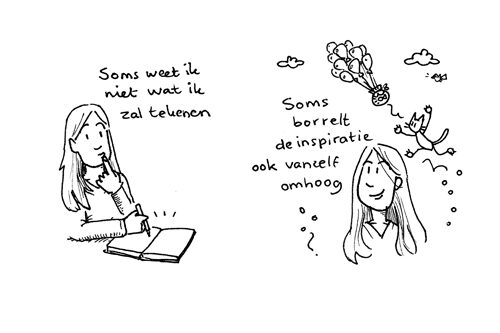 Soms weet ik
niet wat ik
zal tekenen
Soms
borrelt
de inspiratie
ook vanzelf
omhoog